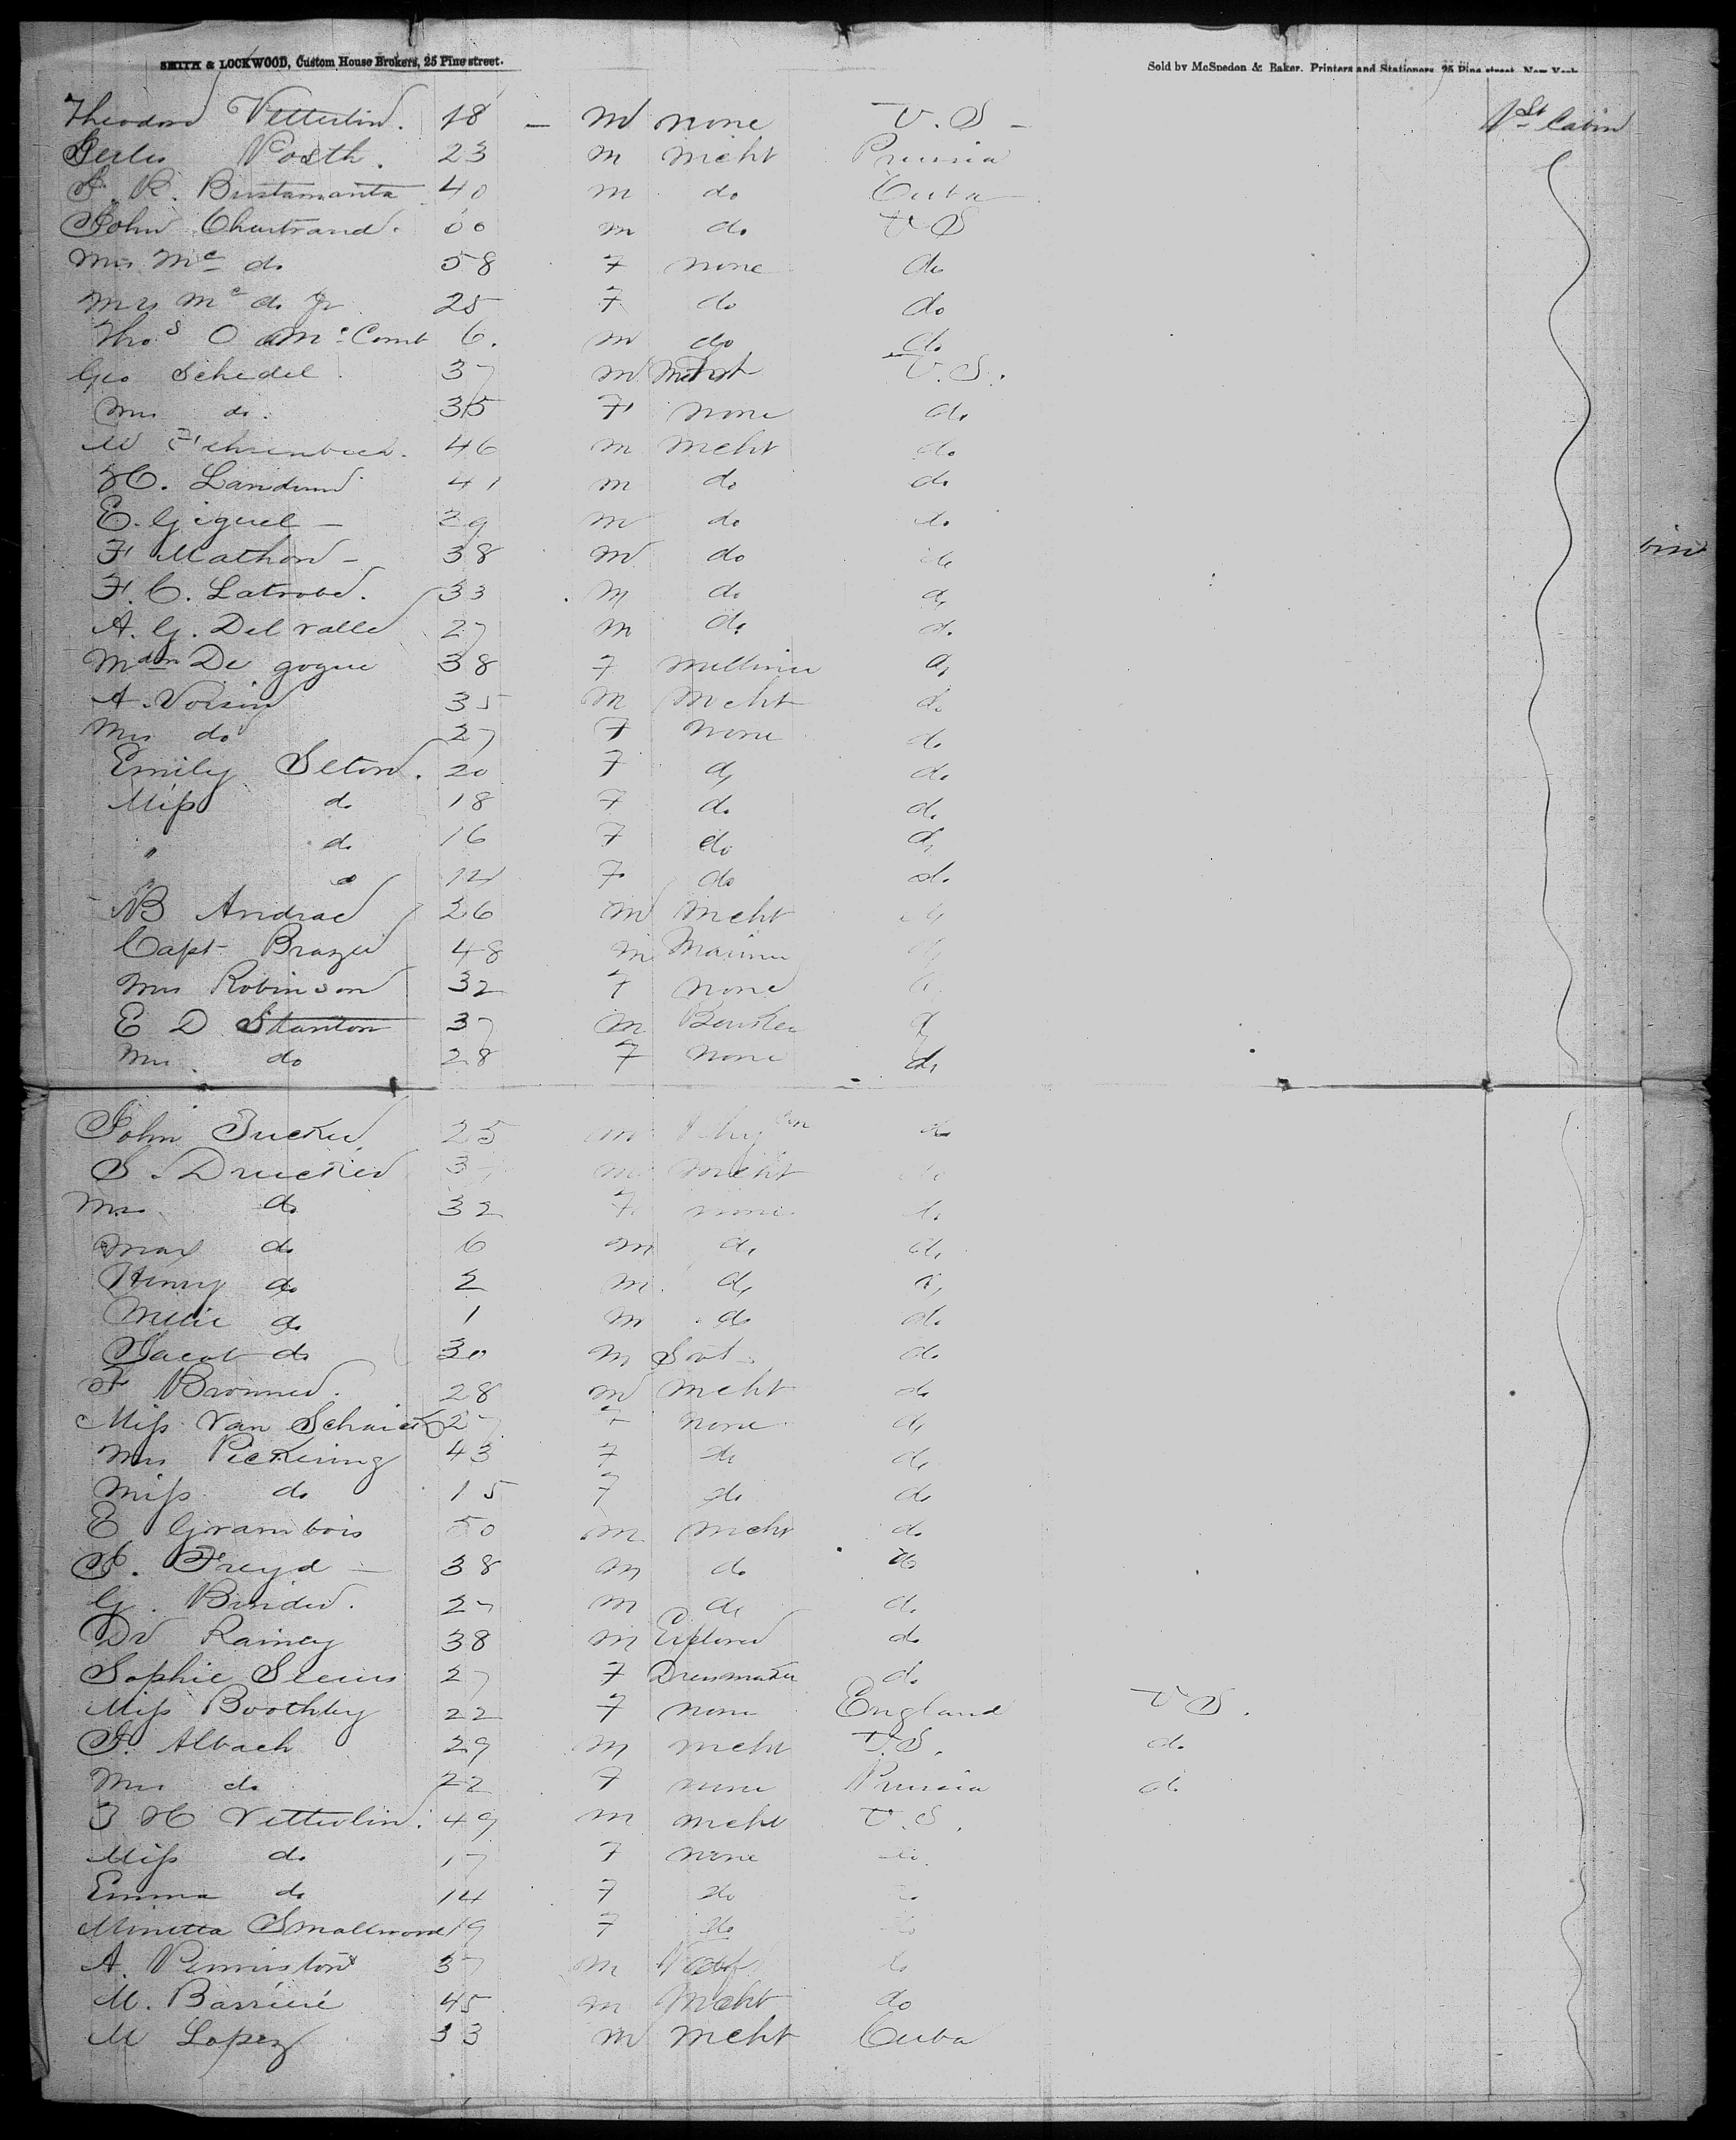 SMITH & LOCKWOOD, Custom House Brokers, 25 Pine street. Sold by McSpedon & Baker, Printers and Stationers, 25 Pine street, New York
Theodore Vetterlin. 18 — M none U.S — 1st Cabin
Posth. 23 m Mcht Prussia
Bustamanta 40 m do Cuba
John Chartrand. 60 m do U S
Mrs Mc do 58 F none do
Mrs Mc do Jr 25 F do do
Thos O Mc Comb 6. m do do
Geo Schedel 37 m Mcht U.S.
Mrs do. 35 F none do
M 46 m Mcht do
H. 41 m do do
E. Giquel — 29 m do do
F Mathon — 38 m do do
F. C. Latrobe. 33 m do do
A. G. Del valle 27 m do do
Mdm De gogue 38 F milliner do
A. Voisin 35 m Mcht do
Mrs do 27 F none do
Emily Seton. 20 F do do
Miss do 18 F do do
" do 16 F do do
" do 14 F do do
B Andrae 26 m Mcht do
Capt Brazer 48 m Mariner do
Mrs Robinson 32 F none do
E D Stanton 37 m do
Mrs do 28 F none do
John 25 m do
S. Drucker 37 m Mcht do
Mrs do 32 F none do
Max do 6 m do do
Henry do 2 m do do
do 1 m do do
Jacob do 30 m Svt do
F Bronner. 28 m Mcht do
Miss Van Schaick 27 F none do
Mrs Pickering 43 F do do
Miss do 15 F do do
E Grambois 50 m Mcht do
Freyd — 38 m do do
G. Binder. 27 m do do
Dr Rainey 38 m do
Sophie 27 F Dressmaker do
Miss Boothby 22 F none England U S.
J. Albach 29 m Mcht U.S. do
Mrs do 22 F none Prussia do
H Vetterlin. 49 m Mcht U.S.
Miss do 17 F none do
Emma do 14 F do do
Minetta Smallwood 19 F do do
A. Penniston 37 m do
M. Barriere 45 m Mcht do
M Lopez 33 m Mcht Cuba